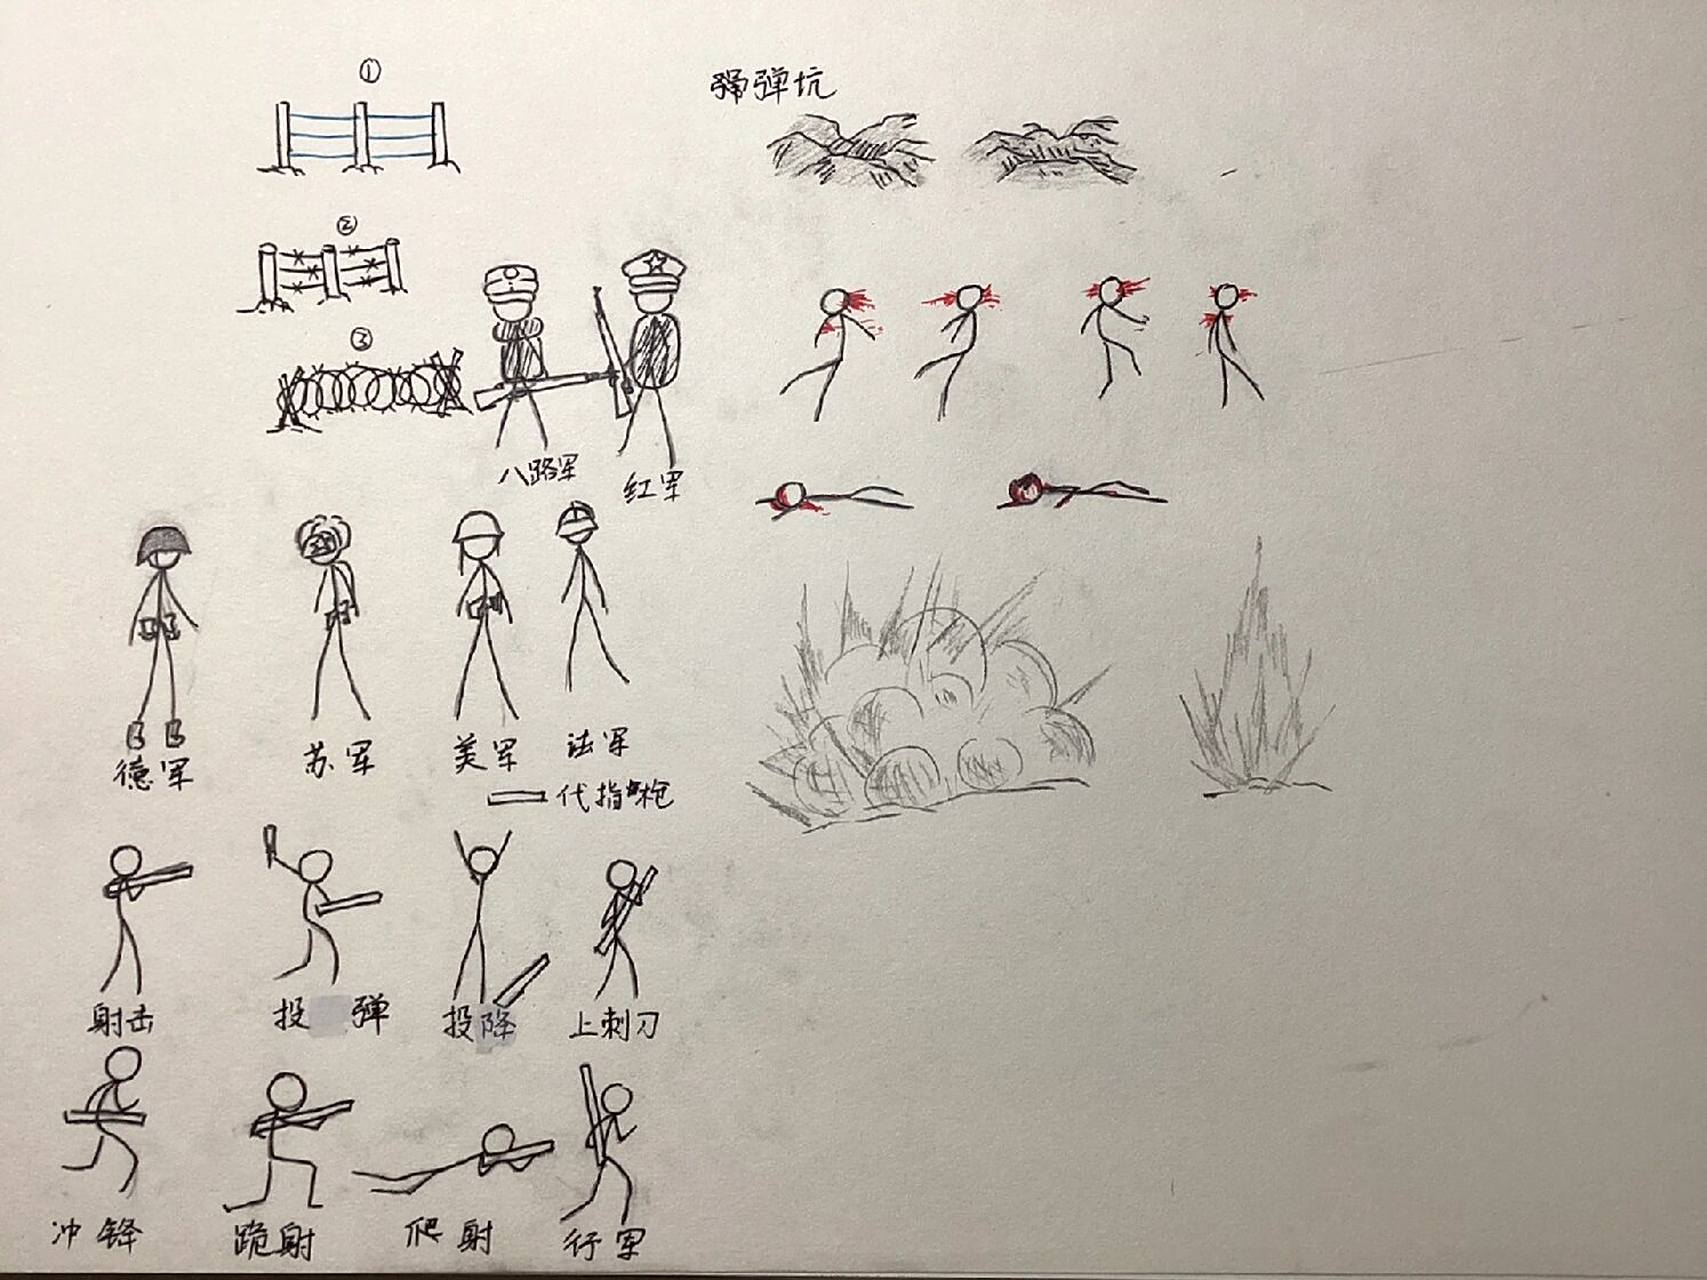 ①
弹坑
②
③
八路军
红军
德军
苏军
美军
法军
代指枪
射击
投 弹
投降
上刺刀
冲锋
跪射
爬射
行军